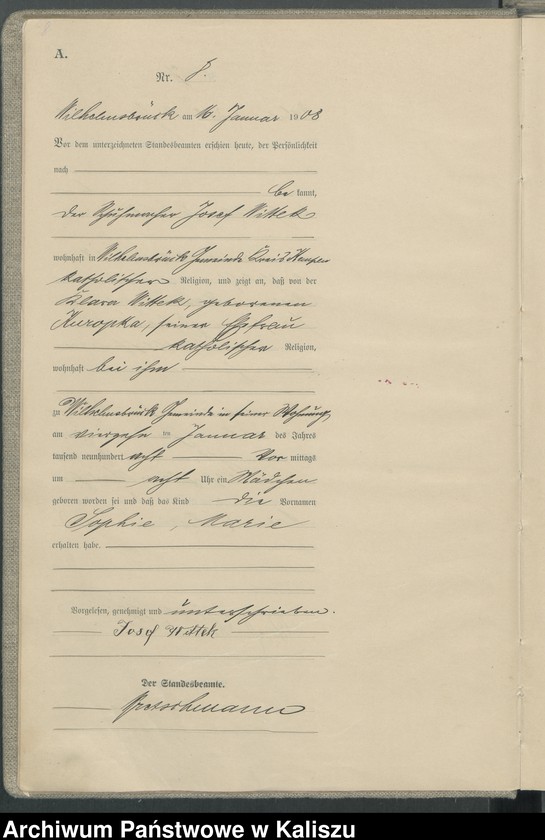 A.
Nr. 8.
Wilhelmsbrück am 16. Januar 1908
Vor dem unterzeichneten Standesbeamten erschien heute, der Persönlichkeit
nach
bekannt,
der Schuhmacher Josef Wittek
wohnhaft in Wilhelmsbrück Gemeinde Kreis Kempen
katholischer Religion, und zeigt an, daß von der
Klara Wittek, geborenen
Kuropka, seiner Ehefrau
katholischer Religion,
wohnhaft bei ihm
zu Wilhelmsbrück Gemeinde in seiner Wohnung
am vierzehn ten Januar des Jahres
tausend neunhundert acht Vor mittags
um acht Uhr ein Mädchen
geboren worden sei und daß das Kind die Vornamen
Sophie, Marie
erhalten habe.
Vorgelesen, genehmigt und unterschrieben.
Josef Wittek
Der Standesbeamte.
Archiwum Państwowe w Kaliszu